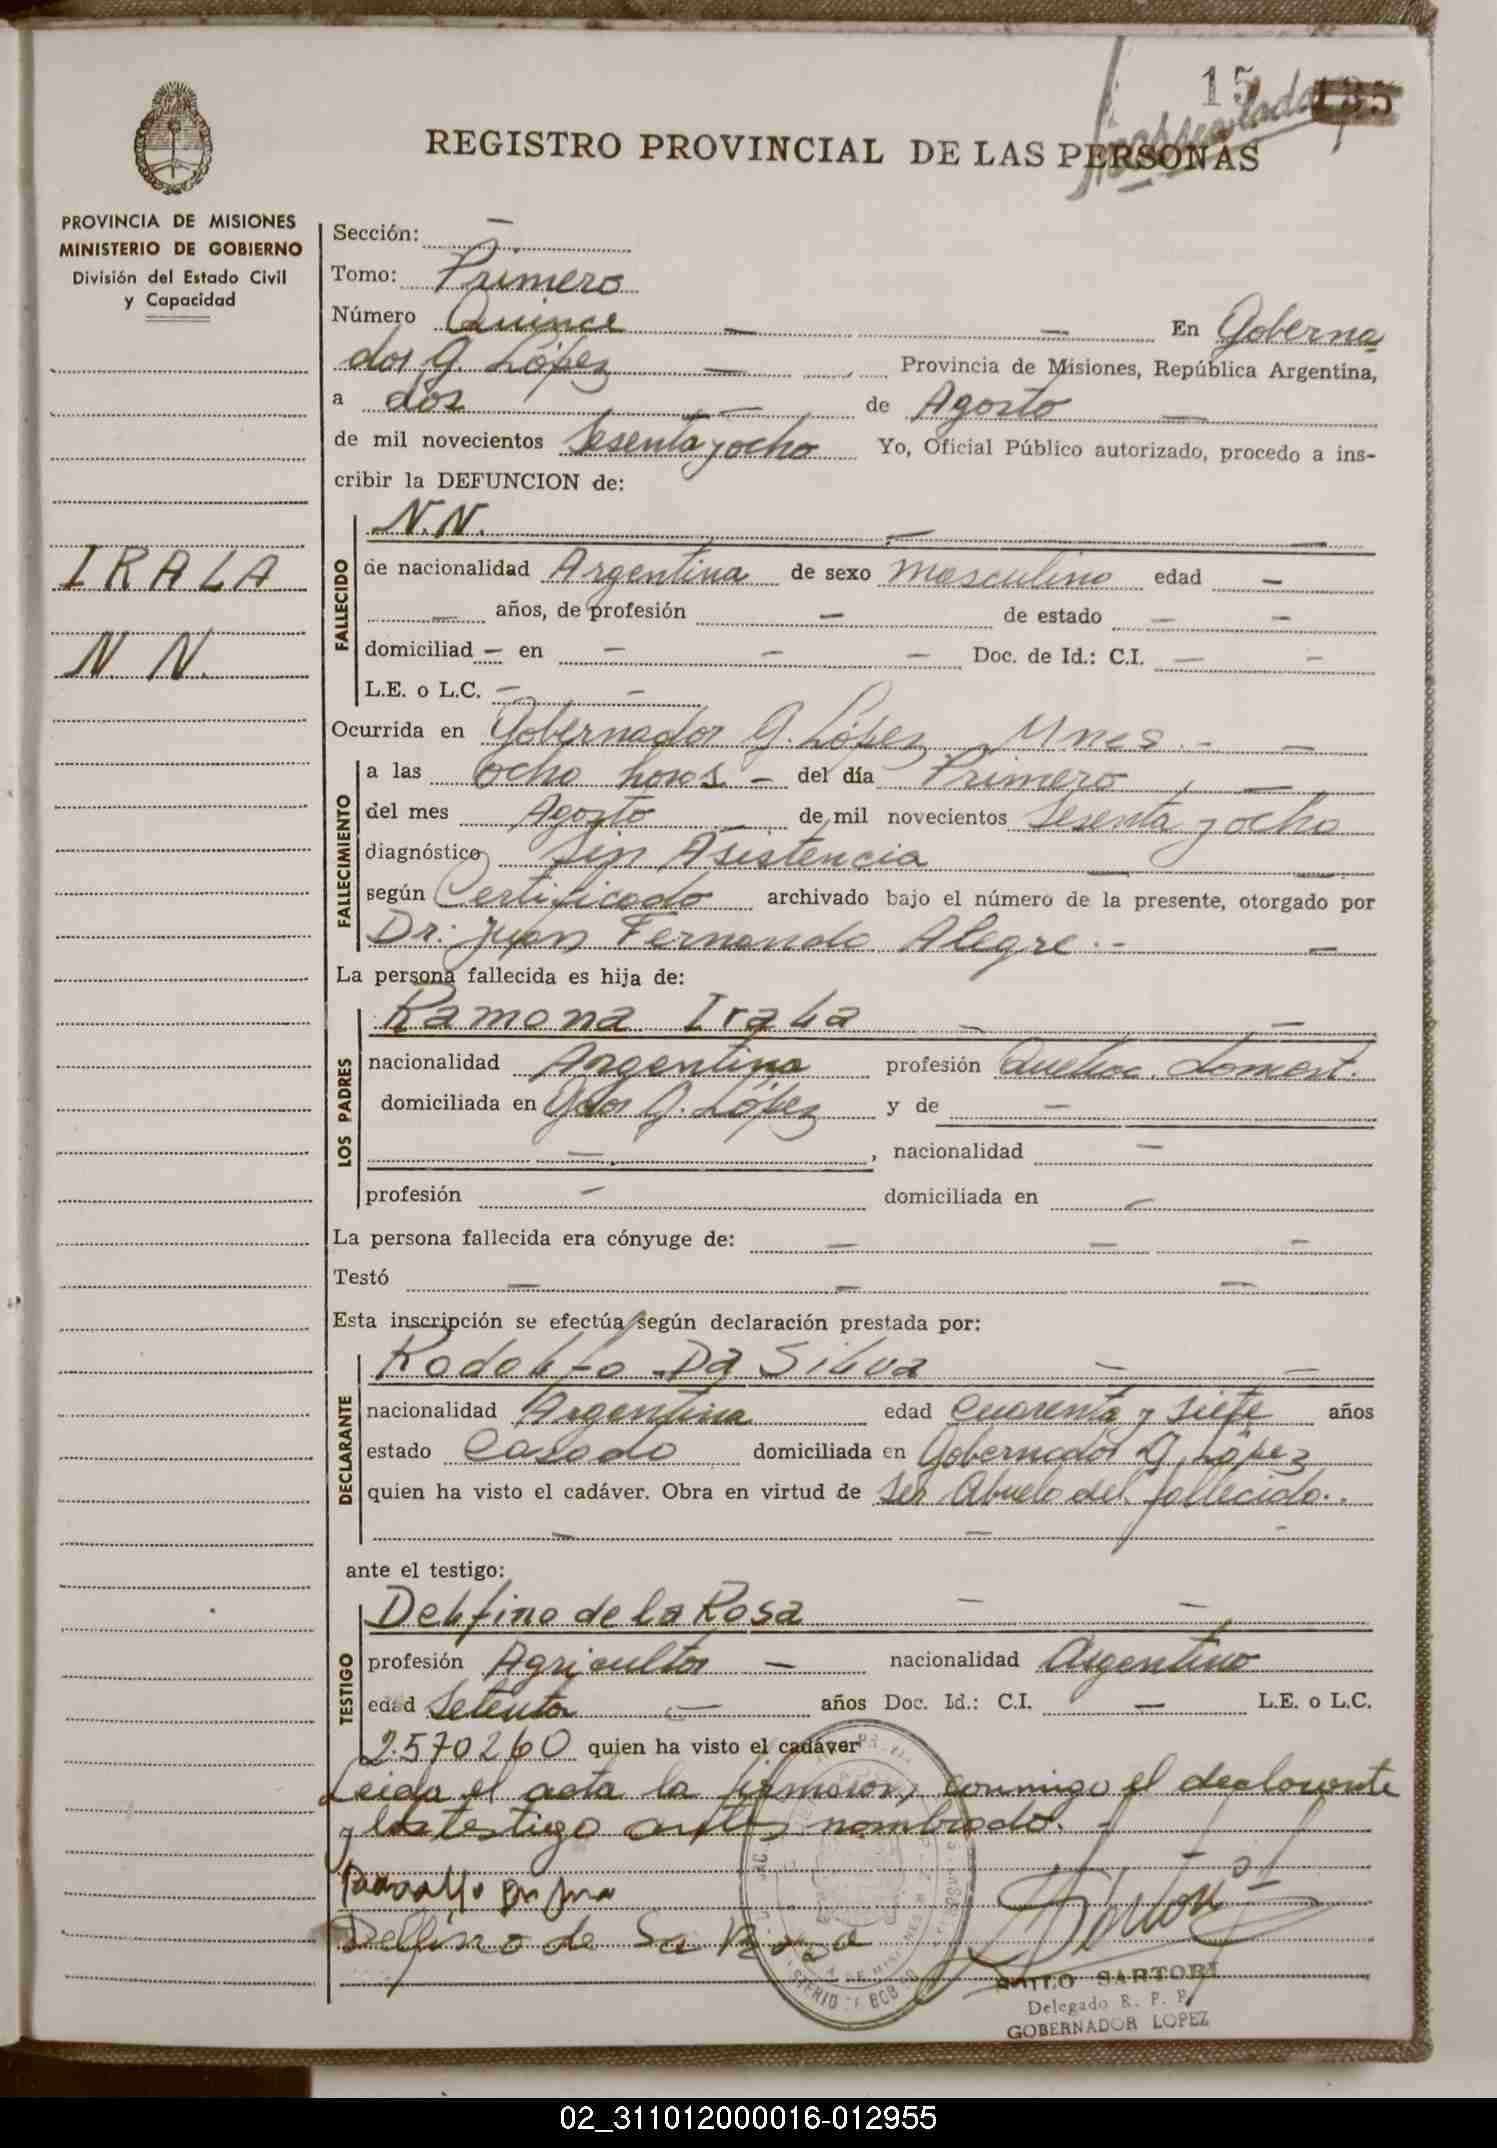 15 135
REGISTRO PROVINCIAL DE LAS PERSONAS
PROVINCIA DE MISIONES
MINISTERIO DE GOBIERNO
División del Estado Civil
y Capacidad
IRALA
N N.
Sección: —
Tomo: Primero
Número Quince — — En Goberna
dor G. López — Provincia de Misiones, República Argentina,
a dos — de Agosto —
de mil novecientos Sesenta y ocho Yo, Oficial Público autorizado, procedo a ins-
cribir la DEFUNCION de:
FALLECIDO
N.N. — —
de nacionalidad Argentina de sexo masculino edad —
— años, de profesión — de estado — —
domiciliad — en — — — Doc. de Id.: C.I. — —
L.E. o L.C. — —
Ocurrida en Gobernador G. López Mnes. — —
FALLECIMIENTO
a las ocho horas — del día Primero —
del mes Agosto — de mil novecientos Sesenta y ocho
diagnóstico Sin Asistencia — —
según Certificado archivado bajo el número de la presente, otorgado por
Dr. Juan Fernando Alegre. — —
La persona fallecida es hija de:
LOS PADRES
Ramona Irala — —
nacionalidad Argentina profesión Quehac. domest.
domiciliada en Gdor G. López y de —
—, nacionalidad —
profesión — domiciliada en —
La persona fallecida era cónyuge de: — — —
Testó — — —
Esta inscripción se efectúa según declaración prestada por:
DECLARANTE
Rodolfo Da Silva — —
nacionalidad Argentina edad Cuarenta y siete años
estado Casado domiciliada en Gobernador G. López
quien ha visto el cadáver. Obra en virtud de Ser Abuelo del fallecido.
— — —
ante el testigo:
TESTIGO
Delfino de la Rosa — —
profesión Agricultor — nacionalidad Argentino
edad Setenta — años Doc. Id.: C.I. — L.E. o L.C.
2.570260 quien ha visto el cadáver
Leida el acta la firmaron, conmigo el declarante
y los testigo antes nombrado. —
Delfino de La Rosa
SARTORI
Delegado R. P. P.
GOBERNADOR LOPEZ
02_311012000016-012955